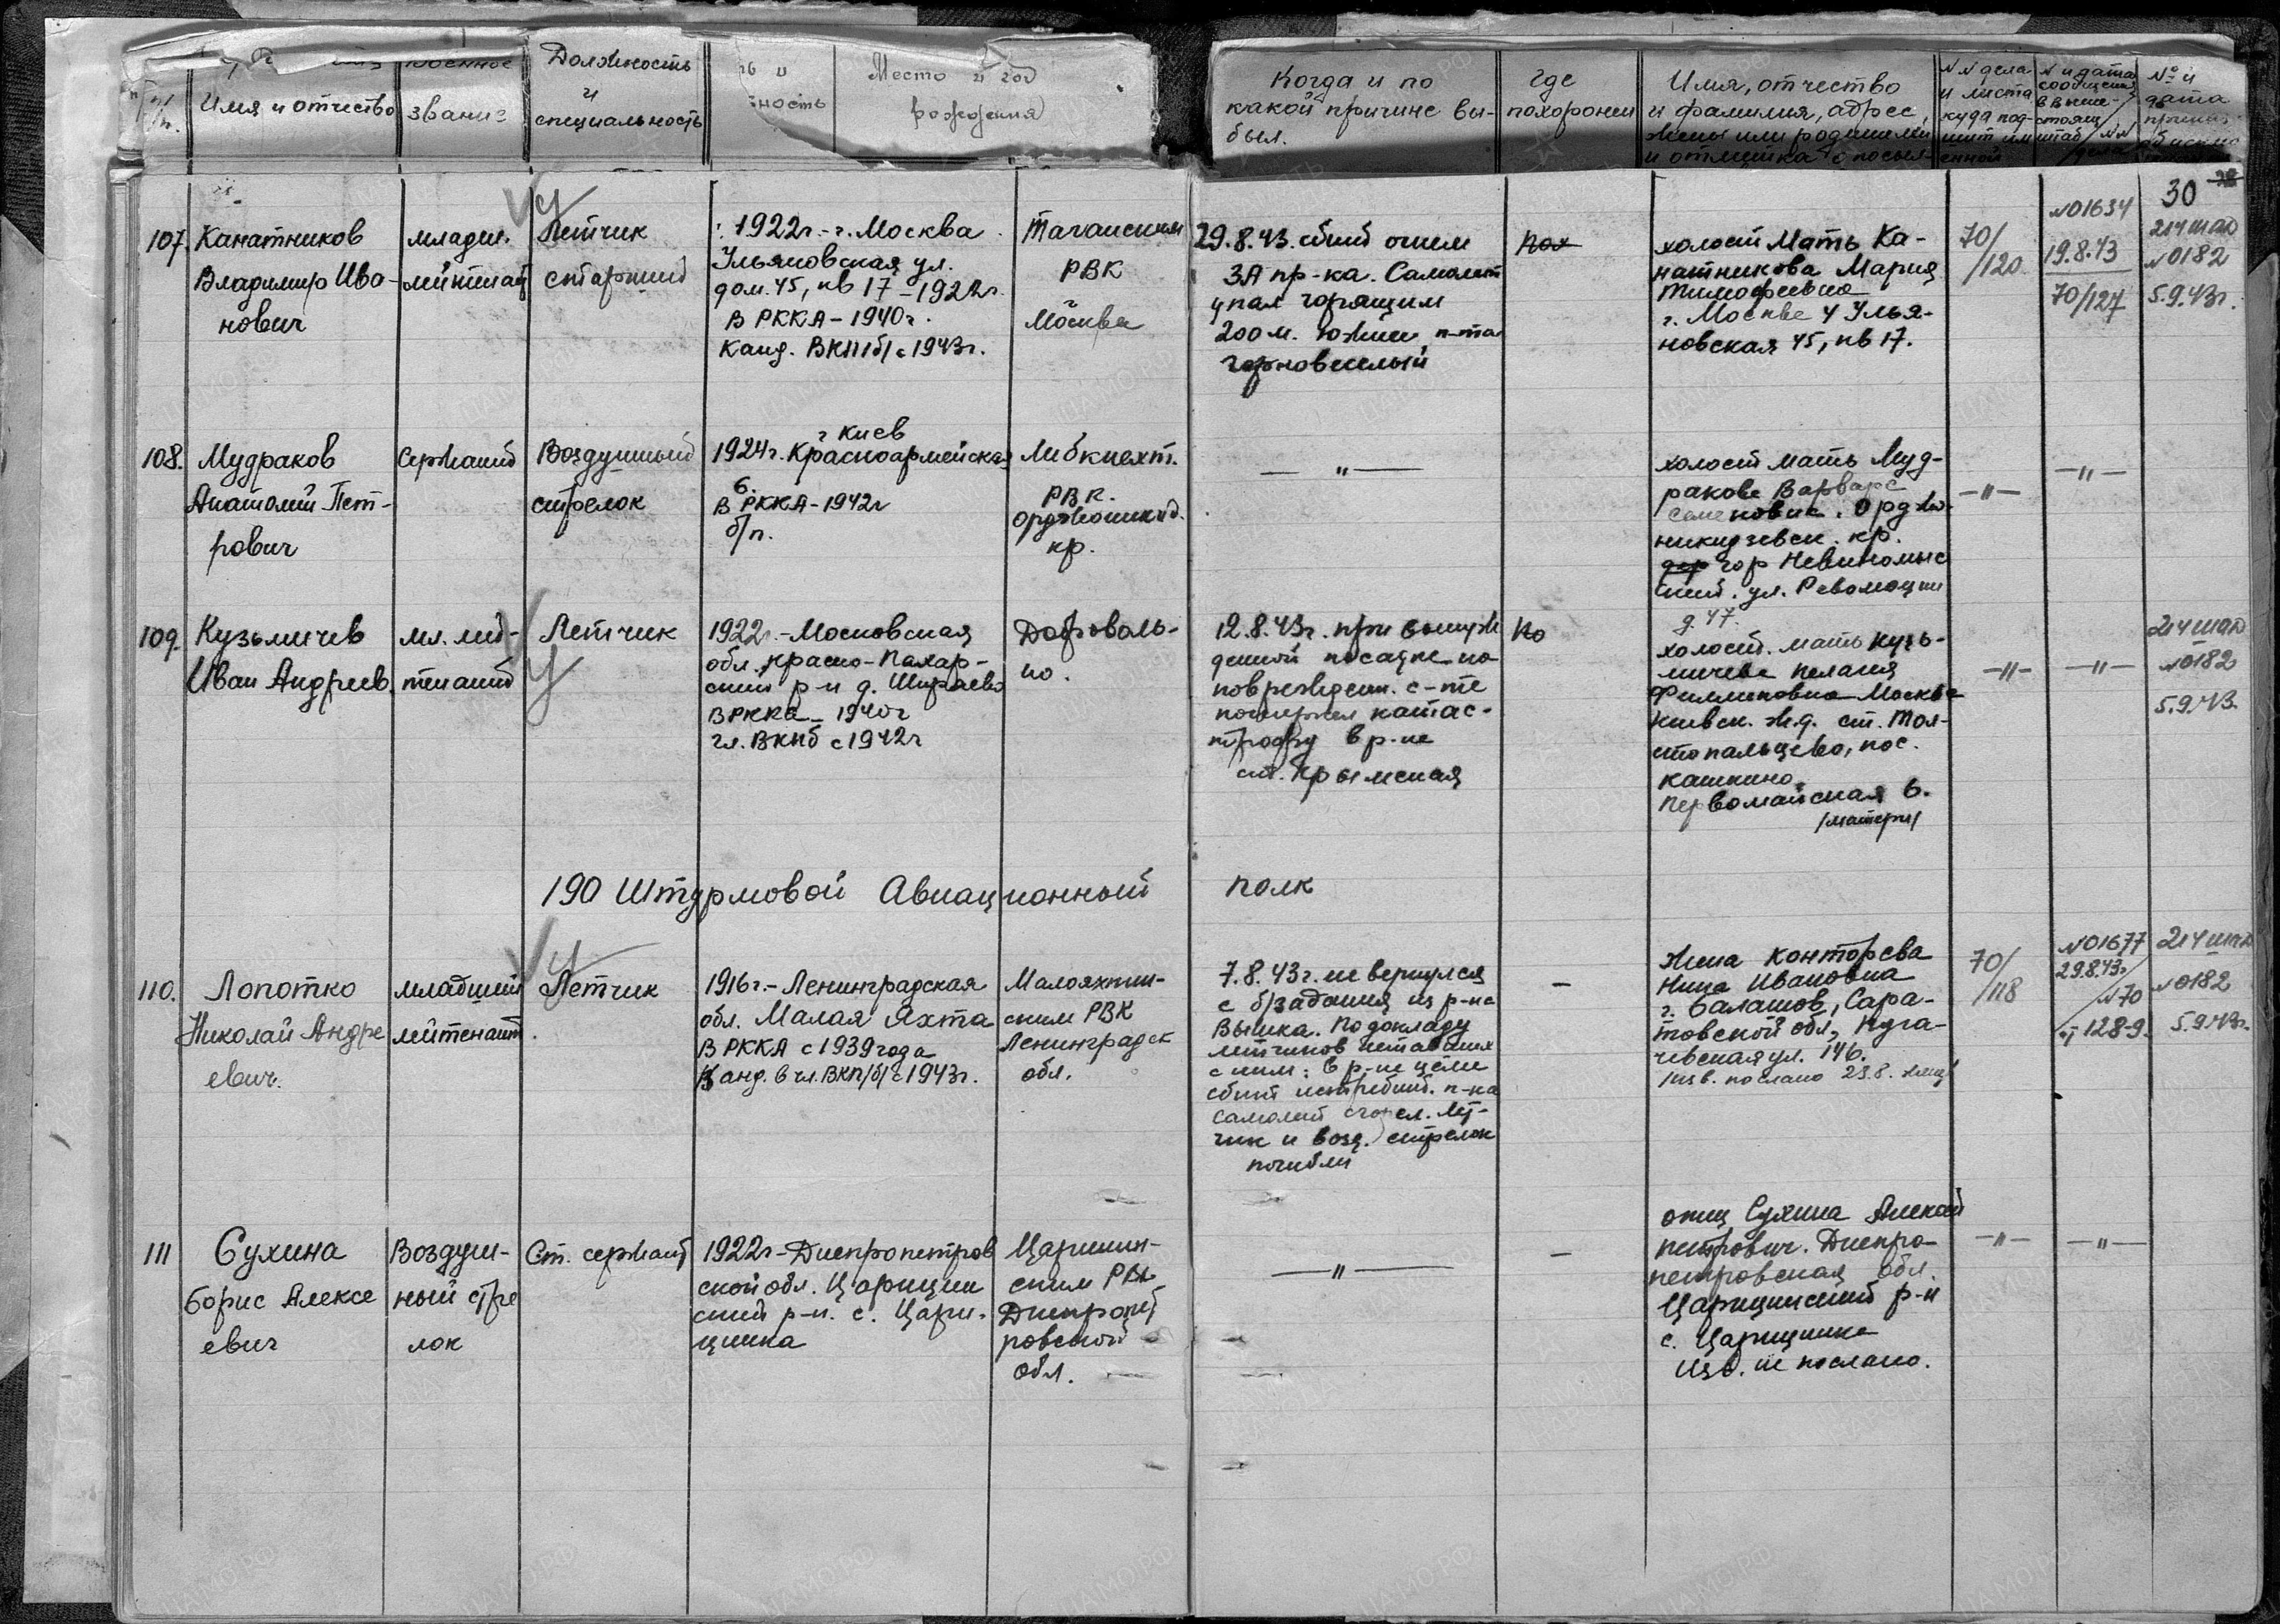 Имя и отчество
звание
Должность
и
специальность
ность
Место и год
рождения
Когда и по
какой причине вы-
был.
где
похоронен
Имя, отчество
и фамилия, адрес,
жены или родителей
и отметка о посыл-
N N дела
и листа
куда под-
шит им
енной
N и дата
сообщения
в выше-
стоящ
штаб / N N
дела
№ и
дата
30
107.
Канатников
Владимир Ива-
нович
младш.
лейтенант
Летчик
старший
1922г. - г. Москва
Ульяновская ул.
дом. 45, кв 17 - 1922г.
В РККА - 1940г.
Канд. ВКП/б/ с 1943г.
Таганским
РВК
г.
Москва
29.8.43. сбит огнем
ЗА пр-ка. Самолет
упал горящим
200 м. южнее п-та
Горновеселый
холост Мать Ка-
натникова Мария
Тимофеевна
г. Москва ч Улья-
новская 45, кв 17.
70/
/120
№01634
19.8.43
70/127
214 шад
№0182
5.9.43г.
108.
Мудраков
Анатолий Пет-
рович
Сержант
Воздушный
стрелок
г Киев
1924г. Красноармейская
6.
В РККА - 1942г
б/п.
Либкнехт.
РВК.
Орджоникид.
кр.
— " —
холост мать Муд-
ракова Варвара
Семеновна. Орджо-
никидзевск. кр.
гор Невиномыс
ский. ул. Революции
д. 47.
— " —
— " —
109.
Кузьмичев
Иван Андреев.
мл. лей-
тенант
Летчик
1922г. - Московская
обл. Красно-Пахар-
ский р-н д. Шираево
В РККА - 1940г
чл. ВКПб с 1942г
Доброволь-
но.
12.8.43г. при вынуж
денной посадке на
поврежден. с-те
потерпел катас-
трофу в р-не
ст. Крымская
холост. мать Кузь-
мичева Пелагия
Филиповна Москва
Киевск. ж.д. ст. Тол-
стопальцево, пос.
Кашкино
Первомайская 6.
/матери/
— " —
— " —
214 шад
№0182
5.9.43.
190 Штурмовой Авиационный полк
110.
Лопотко
Николай Андре
евич.
младший
лейтенант
Летчик
1916г. - Ленинградская
обл. Малая Яхта
В РККА с 1939 года
Канд. в чл. ВКП/б/ с 1943г.
Малояхтин-
ским РВК
Ленинградск
обл.
7.8.43г. не вернулся
с б/задания из р-на
Вышка. По докладу
летчиков летавших
с ним: в р-не цели
сбит истребит. п-ка
самолет сгорел. Лет-
чик и возд. стрелок
погибли
—
Жена Конторева
Нина Ивановна
г. Балашов, Сара-
товской обл, Пуга-
чевская ул. 146.
/изв. послано 23.8. жене/
70/
/118
№01677
29.8.43г
№70
128-9.
214 шад
№0182
5.9.43г.
111
Сухина
Борис Алексе
евич
Воздуш-
ный стре
лок
Ст. сержант
1922г - Днепропетров
ской обл. Царичин
ский р-н. с. Цари-
чинка
Царичин-
ским РВК
Днепропет
ровской
обл.
— " —
—
отец Сухина Алексей
Петрович. Днепро-
петровская обл.
Царичинский р-н
с. Царичинка
Изв. не послано.
— " —
— " —